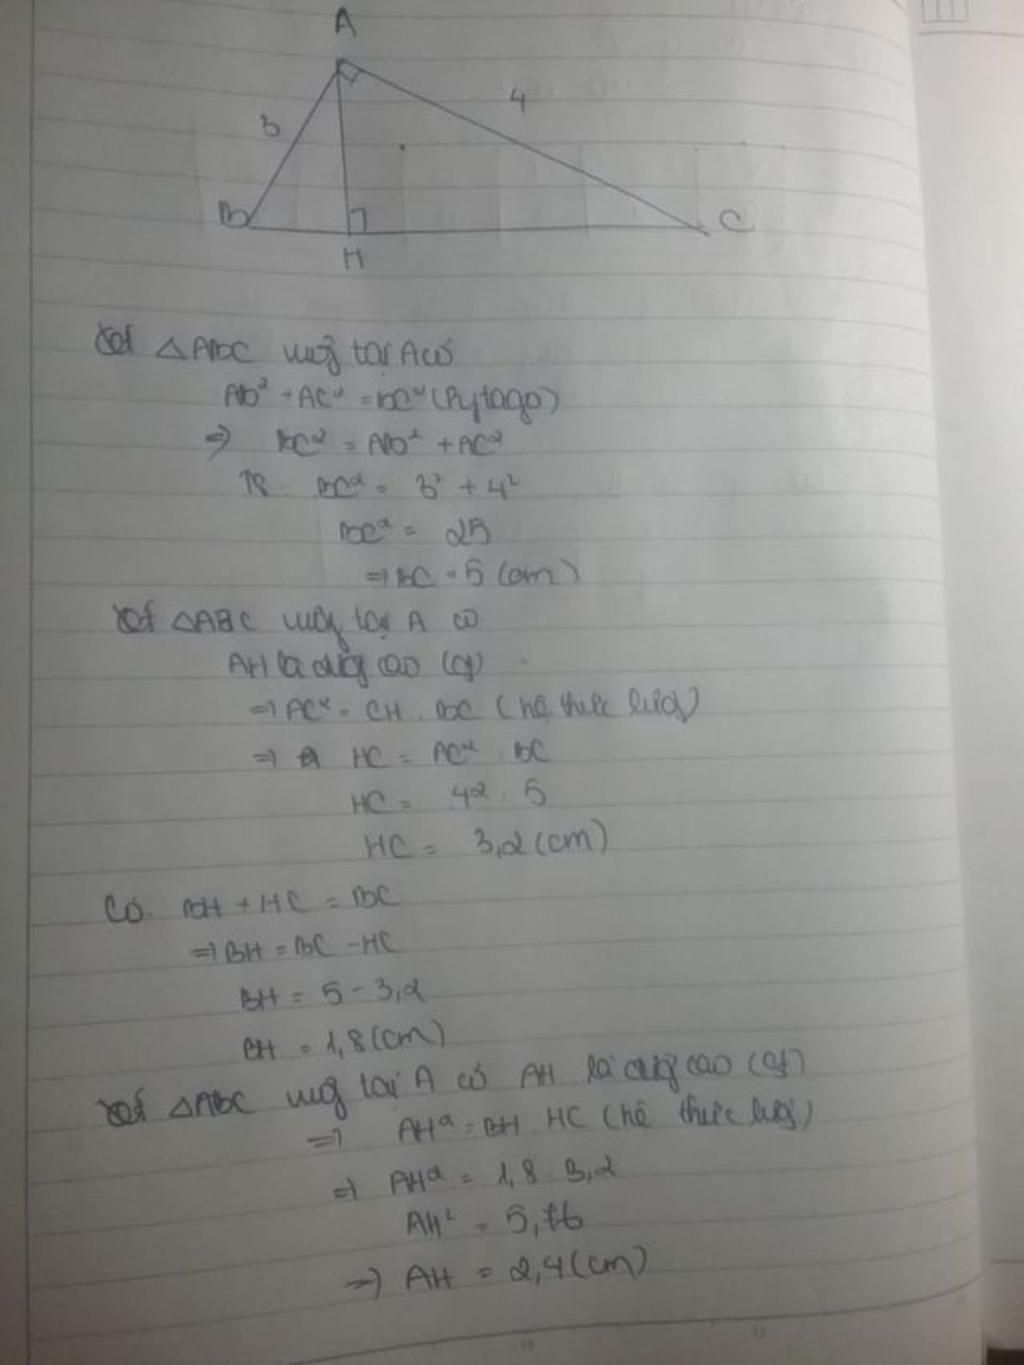 A
3
4
B
C
H
Xét △ABC vuôg tại A có
AB² + AC² = BC² (Pytago)
⇒ BC² = AB² + AC²
TS: BC² = 3² + 4²
BC² = 25
⇒ BC = 5 (cm)
Xét △ABC vuôg tại A có
AH là đườg cao (gt)
⇒ AC² = CH . BC (hệ thức lượg)
⇒ HC = AC² : BC
HC = 4² : 5
HC = 3,2 (cm)
Có: BH + HC = BC
⇒ BH = BC - HC
BH = 5 - 3,2
BH = 1,8 (cm)
Xét △ABC vuôg tại A có AH là đườg cao (gt)
⇒ AH² = BH . HC (hệ thức lượg)
⇒ AH² = 1,8 . 3,2
AH² = 5,76
⇒ AH = 2,4 (cm)